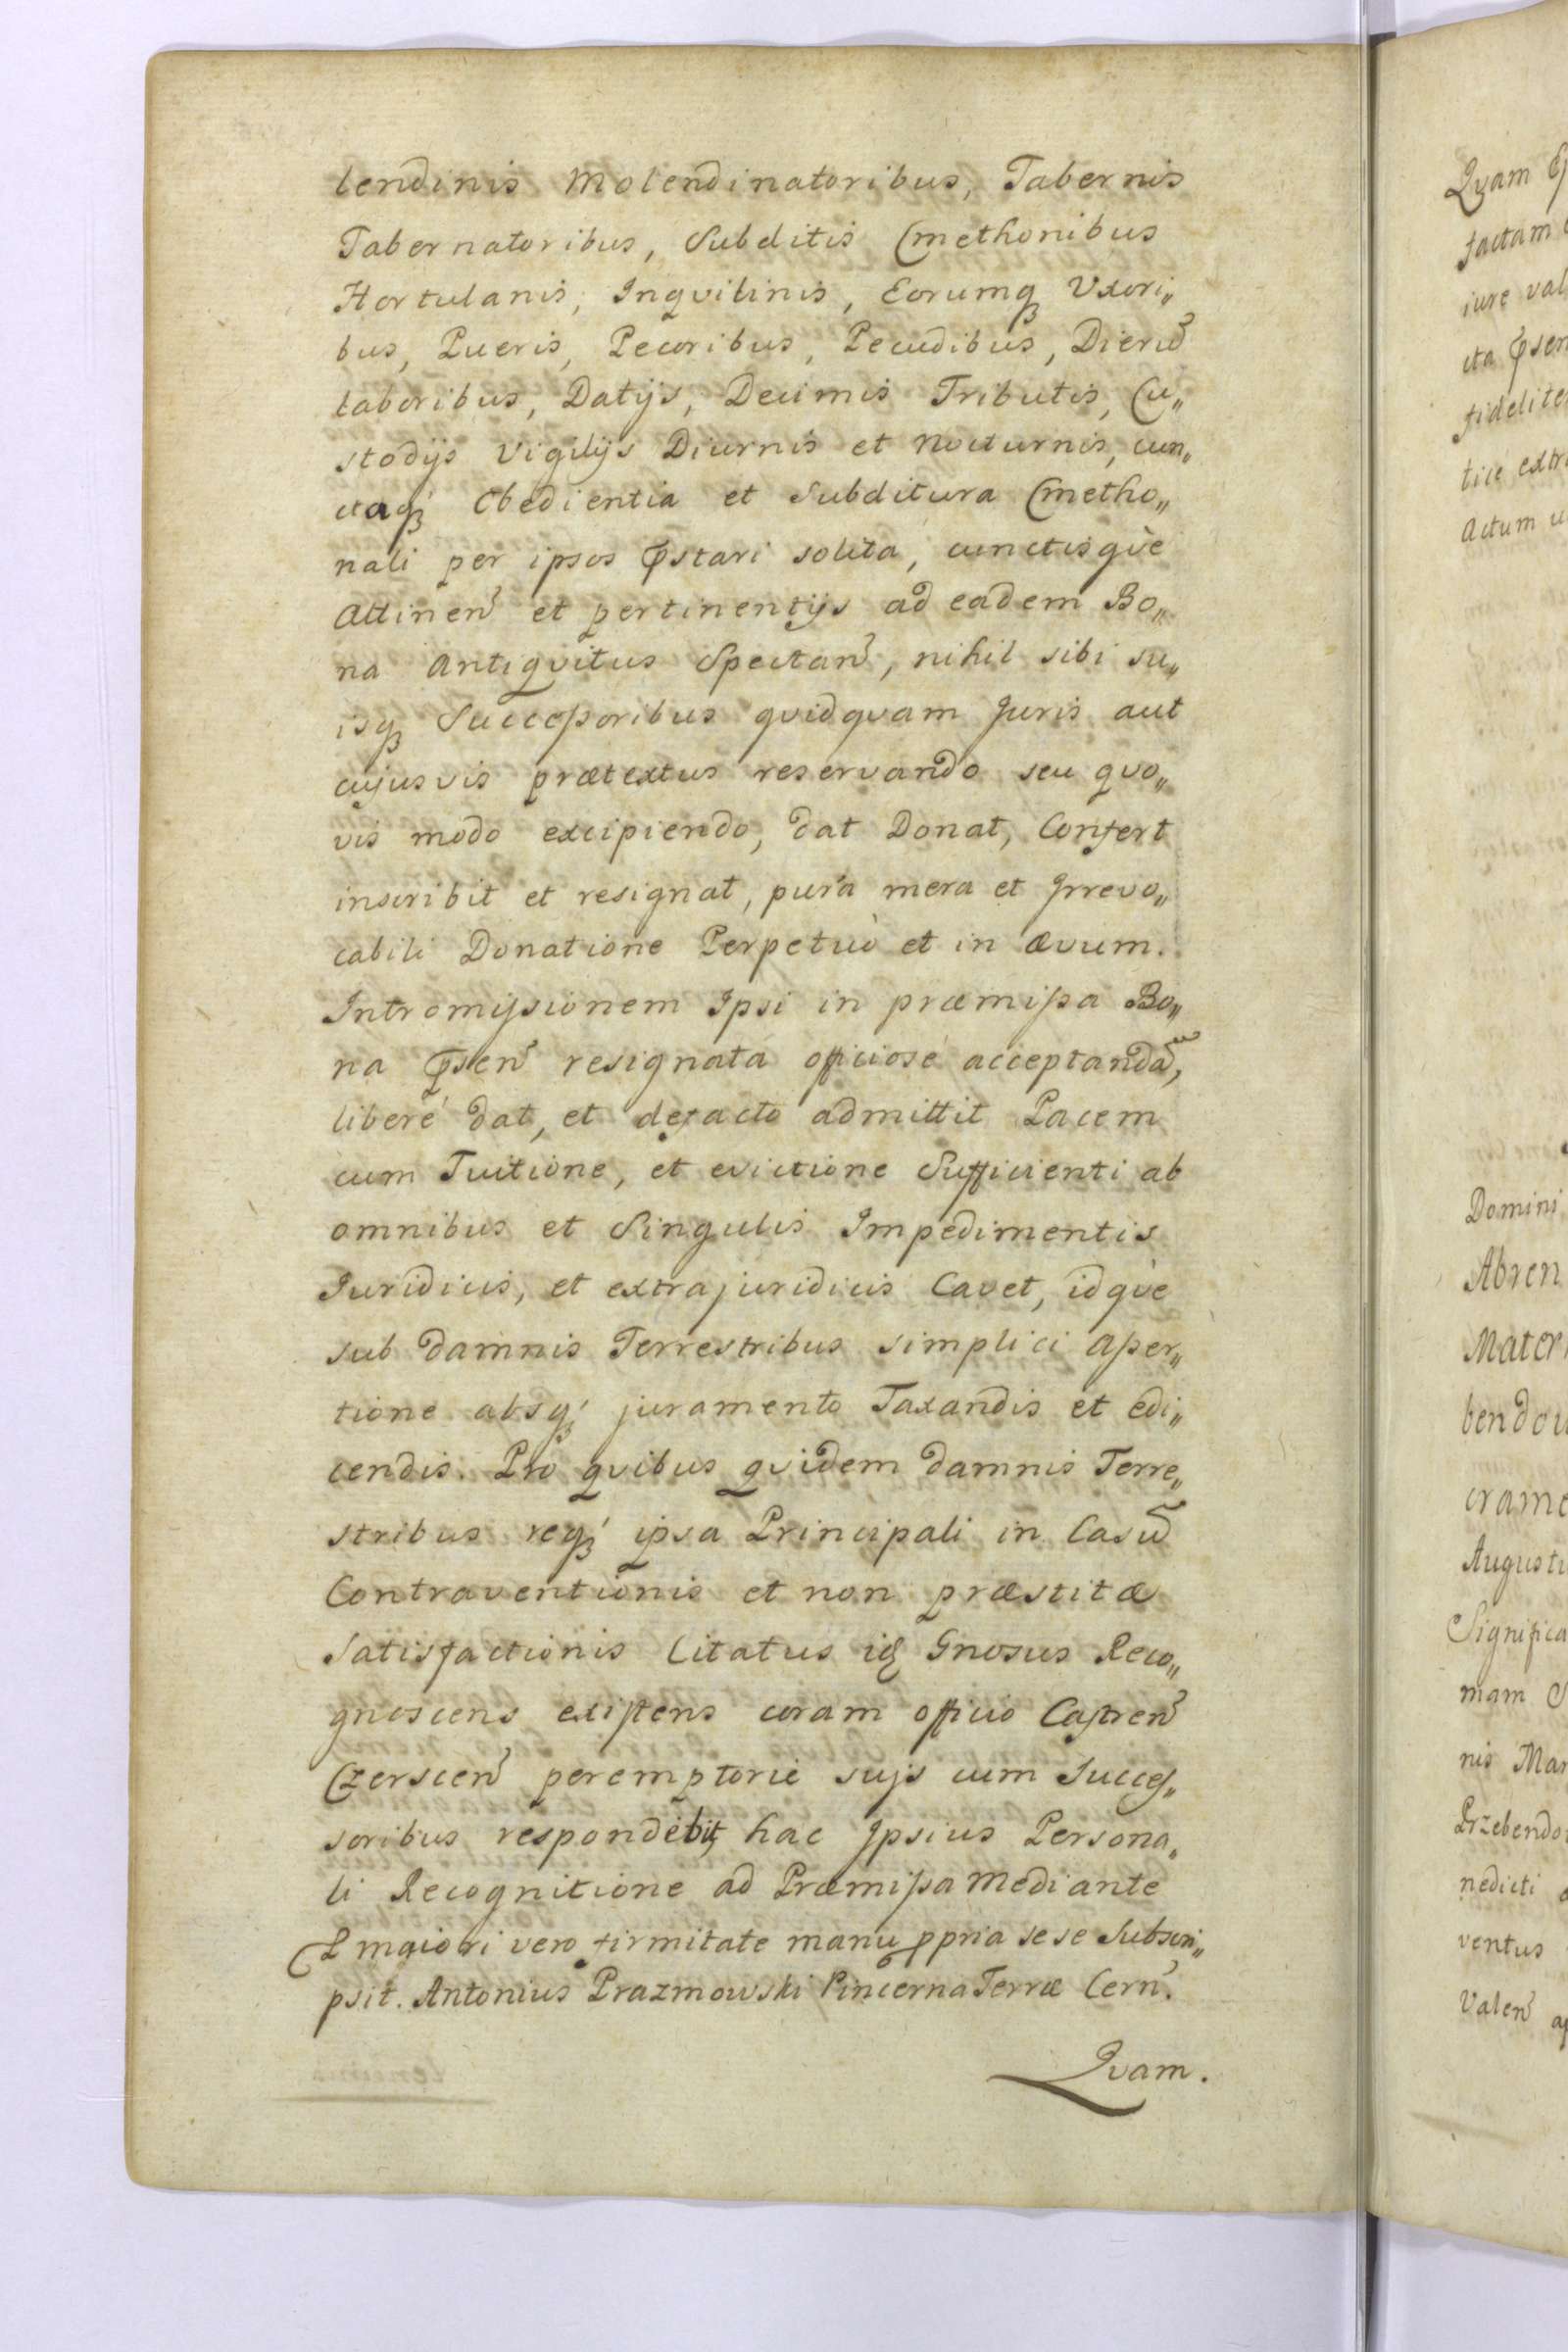 lendinis Molendinatoribus, Tabernis
Tabernatoribus, Subditis Cmethonibus
Hortulanis, Inqvilinis, Eorumq₃ Uxori„
bus, Pueris, Pecoribus, Pecudibus, Dierũ
laboribus, Datijs, Decimis Tributis, Cu„
stodijs Vigilijs Diurnis et Nocturnis, cun„
ctaq₃ Obedientia et Subditura Cmetho„
nali per ipsos p̃stari solita, cunctisqvè
Attinen̄ et pertinentijs ad eadem Bo„
na Antiqvitus Spectan̄, nihil sibi su„
isq₃ Successoribus qvidqvam Juris aut
cujusvis prætextus reservando seu qvo„
vis modo excipiendo, dat Donat, Confert
inscribit et resignat, pura mera et Irrevo„
cabili Donatione Perpetuò et in ævum.
Intromissionem Ipsi in præmissa Bo„
na p̃sen̄ resignata officiosé acceptandã,
liberé dat, et defacto admittit Pacem
cum Tuitione, et evictione Sufficienti ab
omnibus et Singulis Impedimentis
Juridicis, et extrajuridicis Cavet, idqvè
sub damnis Terrestribus simplici Asser„
tione absq₃ juramento Taxandis et edi„
cendis. Pro qvibus qvidem damnis Terre„
stribus req₃ ipsa Principali in Casũ
Contraventionis et non præstitæ
Satisfactionis Citatus id̃ Gnosus Reco„
gnoscens existens coram officio Castren̄
Czerscen̄ peremptorie suis cum Succes„
soribus respondebit, hac Ipsius Persona„
li Recognitione ad Præmissa Mediante
Et maiori vero firmitate manu ppria sese Subscri„
psit. Antonius Prazmowski Pincerna Terræ Cern̄.
Qvam.
Qvam
factam
iure val
cta p̃sen
fidelite
tice extr
Actum
Domini
Abren
Mater
bendou
crame
Augusti
Significa
mam S
nis Mar
Przebendo
nedicti
ventus
Valen̄ ap